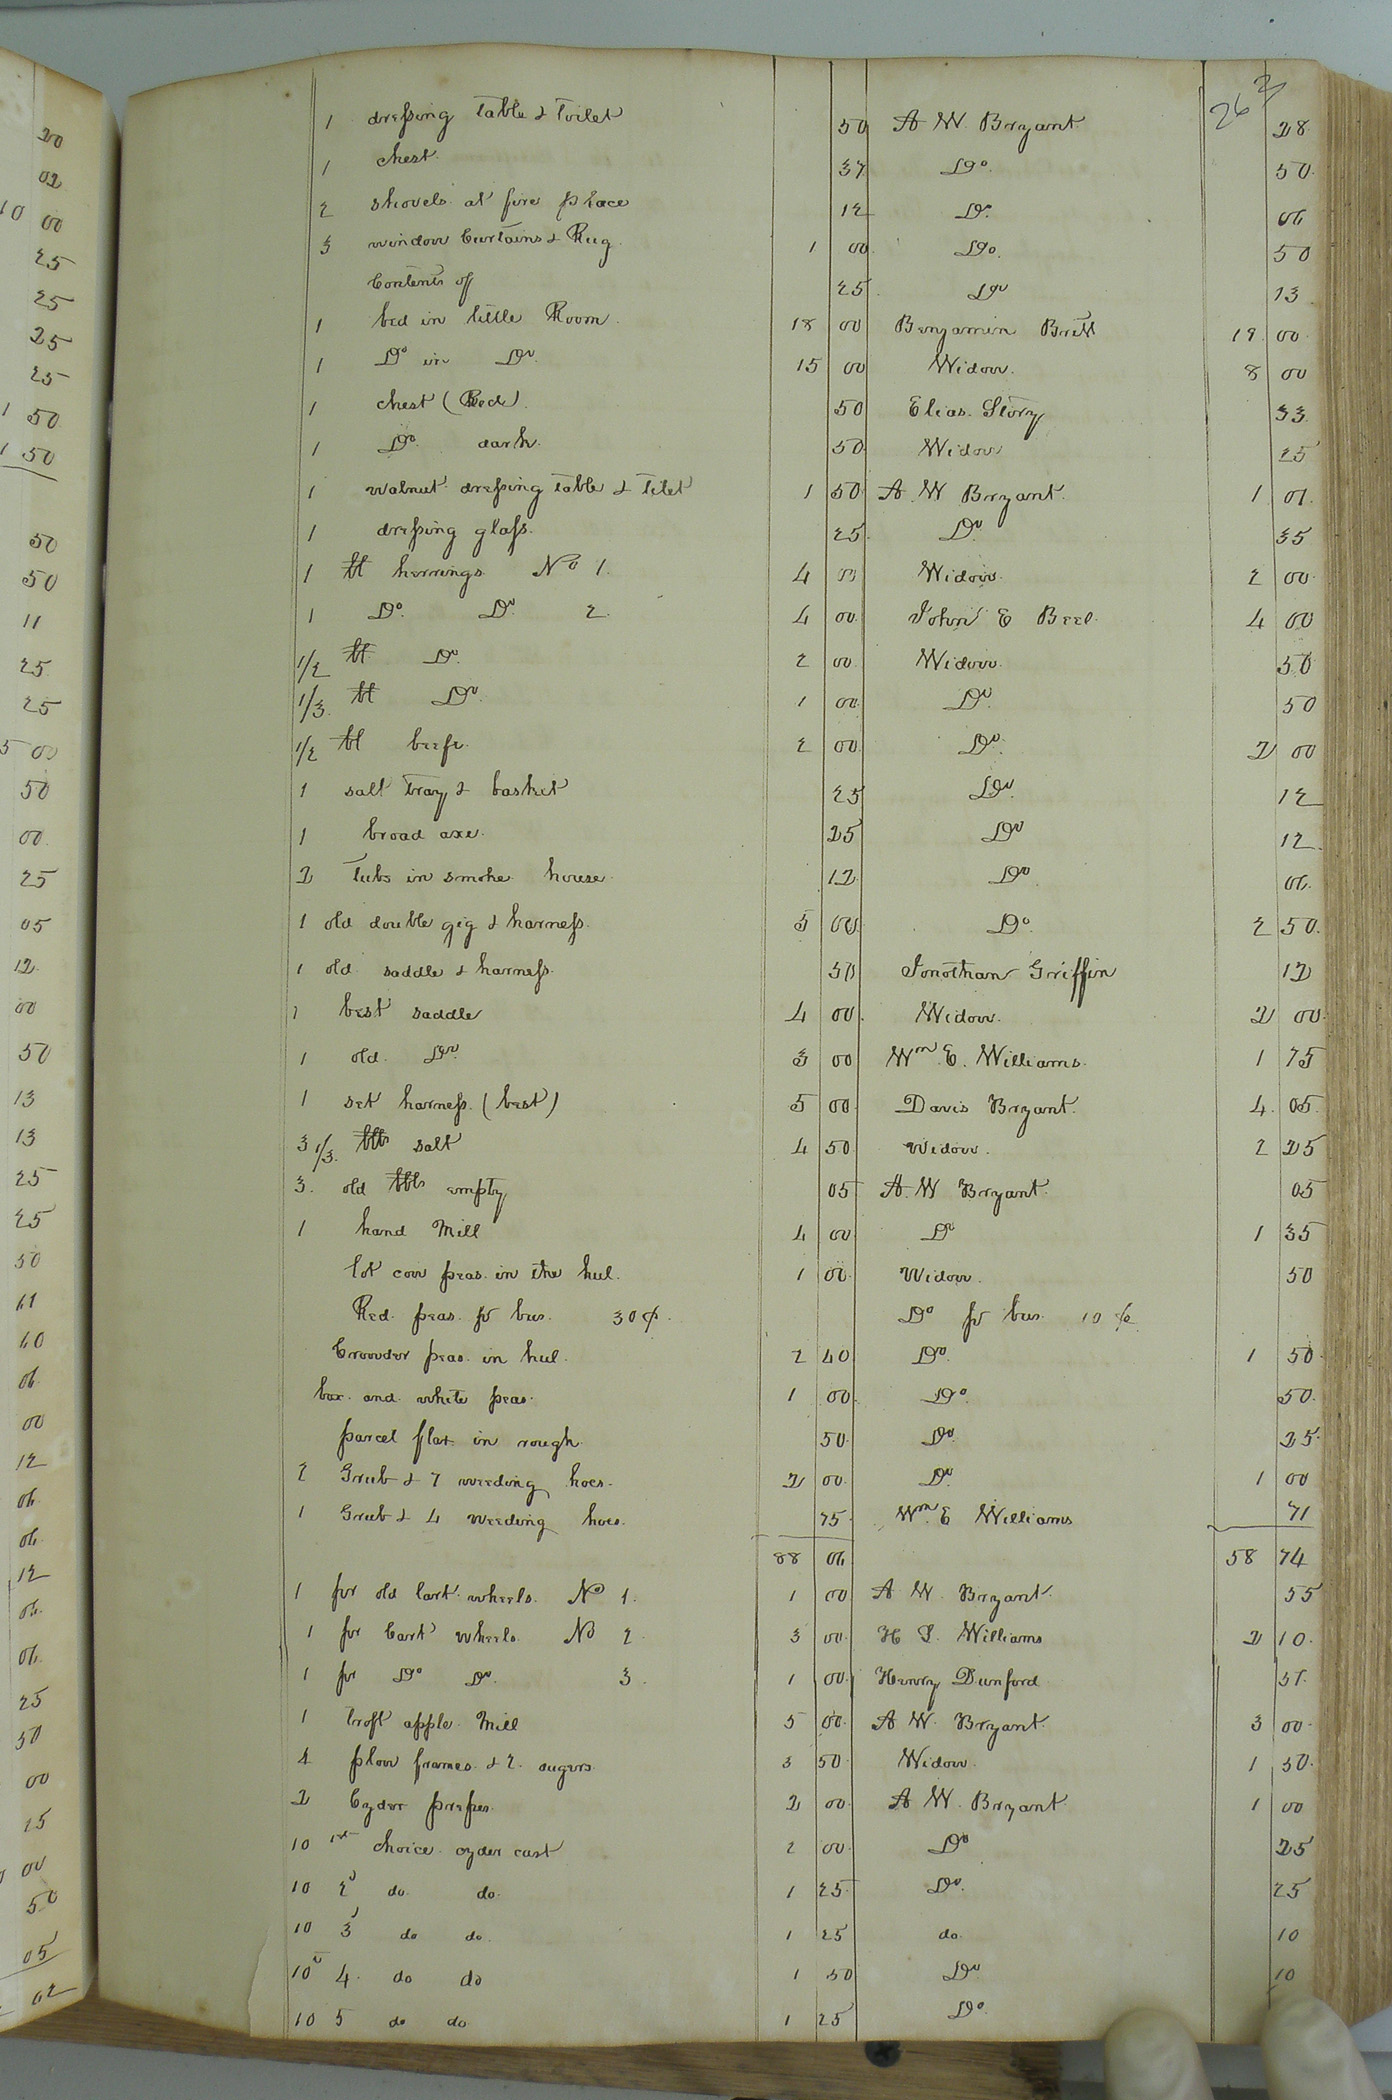 263
1 dressing table & Toilet 50 A W. Bryant 28
1 chest 37 Do. 50
2 shovels at fire place 12 Do. 06
3 window Curtains & Rug 1 00 Do. 50
Contents of 25 Do 13
1 bed in little Room 18 00 Benjamin Britt 19 00
1 Do in Do 15 00 Widow. 8 00
1 chest (Red) 50 Elias Story 33
1 Do dark 50 Widow 25
1 walnut dressing table & tilet 1 50 A. W Bryant 1 01
1 dressing glass. 25 Do 35
1 bl herrings No 1. 4 00 Widow 2 00
1 Do. Do 2. 4 00 John E Beel 4 00
1/2 bl Do. 2 00 Widow. 50
1/3 bl Do. 1 00 Do. 50
1/2 bl beefe 2 00 Do. 2 00
1 salt tray & basket 25 Do. 12
1 broad axe. 25 Do 12
2 tubs in smoke house 12 Do 06
1 old double gig & harness. 5 00 Do. 2 50
1 old saddle & harness 50 Jonothan Griffin 12
1 best saddle 4 00 Widow. 2 00
1 old Do 3 00 Wm E. Williams. 1 75
1 set harness (best) 5 00 Davis Bryant. 4 05
3 1/3 bbls salt 4 50 Widow. 2 25
3. old bbls empty 05 A. W Bryant 05
1 hand Mill 4 00 Do 1 35
lot cow peas in the hul. 1 00 Widow. 50
Red peas pr bus. 30¢. Do pr bus 10 ¢
Crowder peas in hul. 2 40 Do. 1 50
box and white peas. 1 00 Do. 50
parcel flax in rough 50 Do. 25
2 Grub & 7 weeding hoes. 2 00 Do. 1 00
1 Grub & 4 weeding hoes. 75 Wm. E Williams 71
88 06 58 74
1 pr old Cart wheels. No 1. 1 00 A W. Bryant 55
1 pr Cart wheels No 2 3 00 H S. Williams 2 10
1 pr Do Do. 3. 1 00 Henry Dunford 51
1 troft apple Mill 5 00 A W. Bryant. 3 00
4 plow frames & 2. augers 3 50 Widow. 1 50
2 Cyder presses 2 00 A W. Bryant 1 00
10 1st choice cyder cast 2 00 Do 25
10 2d do do. 1 25 Do. 25
10 3d do do 1 25 do. 10
10 4. do do 1 50 Do 10
10 5 do do 1 25 Do.
20
02
10 00
25
25
25
25
1 50
1 50
50
50
11
25
25
5 00
50
00
25
05
12
00
50
13
13
25
25
50
60
06
00
12
06
06
12
06
06
25
50
00
00
50
05
02